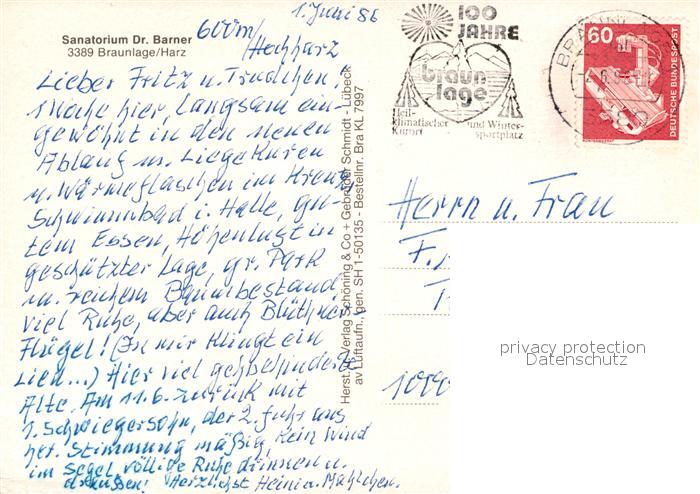 1. Juni 86
600m/
Hochharz
Sanatorium Dr. Barner
3389 Braunlage/Harz
Lieber Fritz u. Trudchen,
1 Woche hier, langsam ein-
gewöhnt in den neuen
Ablauf m. Liegekuren
u. Wärmeflaschen im Kreuz
Schwimmbad i. Halle, gu-
tem Essen, Höhenluft in
geschützter Lage, gr. Park
m. reichem Baumbestand
viel Ruhe, aber auch Blüthner
Flügel! (In mir klingt ein
Lied...) Hier viel gehbehinderte
Alte. Am 11.6. zurück mit
1. Schwiegersohn, der 2. fuhr uns
her. Stimmung mäßig, kein Wind
im Segel, völlige Ruhe drinnen u.
draußen! Herzlichst Heini u.
Herst. u. Verlag Schöning & Co + Gebrüder Schmidt - Lübeck
av Luftaufn., gen. SH 1-50135 - Bestellnr. Bra KL 7997
100
JAHRE
braun
lage
Heil-
klimatischer
Kurort
und Winter-
sportplatz
60
DEUTSCHE BUNDESPOST
Herrn u. Frau
F.
privacy protection
Datenschutz